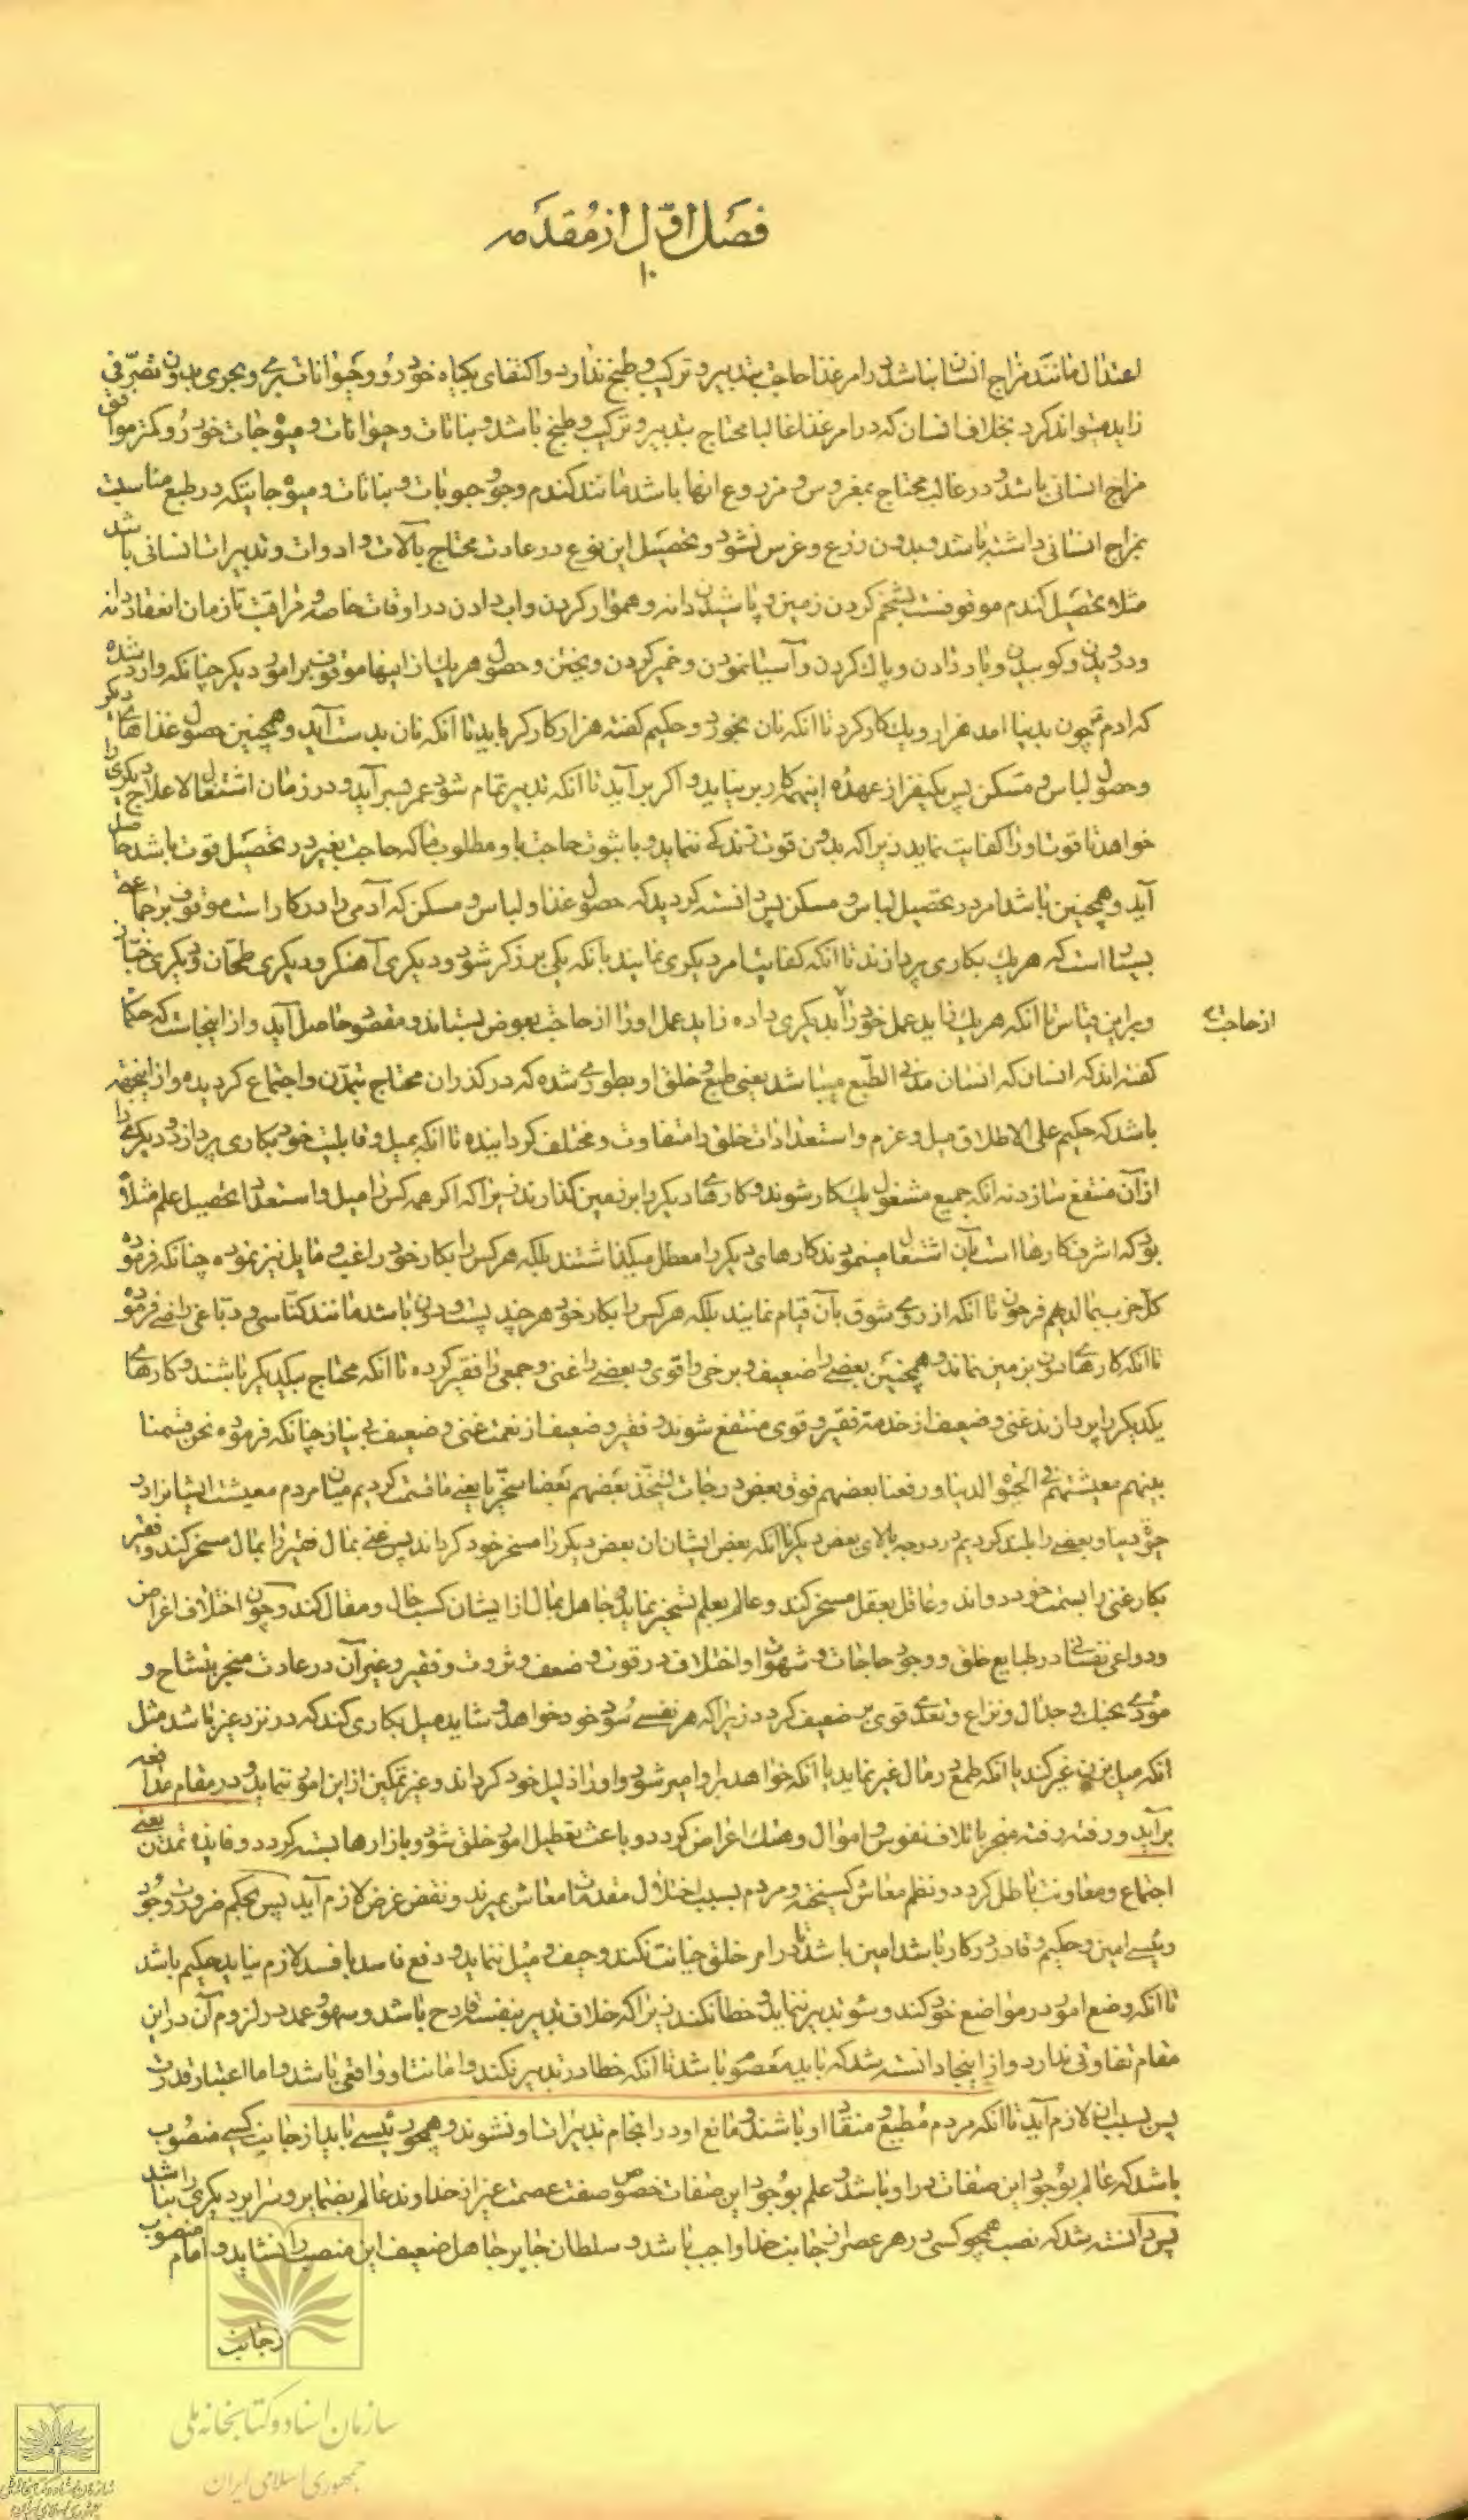 فصل اول از مقدمه
۱۰
اعتدال مانند مزاج انسان نباشد در امر غذا حاجت بتدبیر و ترکیب و طبخ ندارد و اکتفای بکیاه خودرو و حیوانات بری و بحری بدون تصرّفی
زاید میتواند کرد بخلاف انسان که در امر غذا غالبا محتاج بتدبیر و ترکیب و طبخ باشد و نباتات و حیوانات و میوهجات خودرو کمتر موافق
مزاج انسانی باشد و در غالب محتاج بمغروس و مزروع انها باشد مانند کندم و جو و حبوبات و نباتات و میوهجاتیکه در طبع مناسبت
بمزاج انسانی داشته باشد و بدون زرع و غرس نشود و تحصیل این نوع در عادت محتاج بآلات و ادوات و تدبیرات انسانی باشد
مثلا تحصیل کندم موقوفست بشخم کردن زمین و پاشیدن دانه و هموار کردن و اب دادن در اوقات خاصه و مراقبت تا زمان انعقاد دانه
و درویدن و کوبیدن و باد دادن و پاک کردن و آسیا نمودن و خمیر کردن و پختن و حصول هریک از اینها موقوف بر امور دیکر چنانکه وارد شده
که ادم چون بدنیا امد هزار و یک کار کرد تا انکه نان بخورد و حکیم کفته هزار کارکر باید تا انکه نان بدست آید و همچنین حصول غذاهای دیکر
و حصول لباس و مسکن پس یکنفر از عهدهٔ اینهمه کار بر نیاید و اکر بر آید تا انکه تدبیر تمام شود عمر بسر آید و در زمان اشتغال لا علاج دیکری را
خواهد تا قوت او را کفایت نماید زیرا که بدون قوت زندکی ننماید و با ثبوت حاجت باو مطلوب ما که حاجت بغیر در تحصیل قوت باشد حاصل
آید و همچنین باشد امر در تحصیل لباس و مسکن پس دانسته کردید که حصول غذا و لباس و مسکن که آدمی را در کار است موقوف بر جماعتی
بسیار است که هریک بکاری پردازند تا انکه کفایت امر دیکری نمایند بانکه یکی برزکر شود و دیکری آهنکر و دیکری طحّان و دیکری خبّاز
و براین قیاس تا انکه هریک زاید عمل خود را بدیکری داده زاید عمل او را از حاجت بعوض بستاند و مقصود حاصل آید و از اینجاست که حکما
از حاجت
کفته اند که انسان که انسان مدنی الطّبع میباشد یعنی طبع و خلق او بطوری شده که در کذران محتاج بتمدّن و اجتماع کردیده و از اینجهة
باشد که حکیم علی الاطلاق میل و عزم و استعدادات خلق را متفاوت و مختلف کردانیده تا انکه بمیل و قابلیت خود بکاری پردازد و دیکری را
از آن منتفع سازد نه انکه جمیع مشغول یک کار شوند و کارهای دیکر را بر زمین کذارند زیرا که اکر همه کس را میل و استعداد تحصیل علم مثلاً
بود که اشرف کارها است بآن اشتغال مینمودند کارهای دیکر را معطل میکذاشتند بلکه هرکس را بکار خود راغب و مایل نیز نموده چنانکه فرموده
کل حزب بما لدیهم فرحون تا انکه از روی شوق بآن قیام نمایند بلکه هرکس را بکار خود هر چند پست و دون باشد مانند کنّاسی و دبّاغی راضی فرموده
تا انکه کارهای دون بزمین نماند و همچنین بعضی را ضعیف و برخی را قوی و بعضی را غنی و جمعی را فقیر کرده تا انکه محتاج بیکدیکر باشند و کارهای
یکدیکر را پردازند غنی و ضعیف از خدمة فقیر و قوی منتفع شوند و فقیر و ضعیف از نعمت غنی و ضعیف بی نیاز چنانکه فرموده نحن قسمنا
بینهم معیشتهم فی الحیوة الدنیا و رفعنا بعضهم فوق بعض درجات لیتّخذ بعضهم بعضا سخریّا یعنی ما قسمت کردیم میان مردم معیشت ایشانرا در
حیوة دنیا و بعضی را بلند کردیم در درجه بالای بعض دیکر تا انکه بعض ایشان ان بعض دیکر را مسخر خود کرداند پس غنی بمال فقیر را بمال مسخر کند و فقیر
بکار غنی را بسمت خود دواند و عاقل بعقل مسخر کند و عالم بعلم تسخیر نماید و جاهل بمال از ایشان کسب حال و مقال کند و چون اختلاف اغراض
و دواعی نفسانی در طبایع خلق و وجود حاجات و شهوات او اختلاف در قوت و ضعف و ثروت و فقیر و غیر آن در عادت منجر بتشاح و
مؤدی بجنک و جدال و نزاع و تعدی قوی بر ضعیف کردد زیرا که هر نفسی سود خود خواهد و شاید میل بکاری کند که در نزد غیر باشد مثل
انکه میل بزن غیر کند یا انکه طمع در مال غیر نماید یا انکه خواهد بر او امیر شود و او را ذلیل خود کرداند و غیر تمکین از این امور ننماید و در مقام مدافعه
برآید و رفته رفته منجر باتلاف نفوس و اموال و هتک اعراض کردد و باعث تعطیل امور خلق شود و بازارها بسته کردد و فایدهٔ تمدّن یعنی
اجتماع و معاونت باطل کردد و نظم معاش کسیخته و مردم بسبب اختلال مقدمات معاش بمیرند و نقض غرض لازم آید پس بحکم ضرورت وجود
رئیسی امین و حکیم و قادر در کار باشد امین باشد تا در امر خلق خیانت نکند و حیف و میل ننماید و دفع فاسد بافسد لازم نیاید حکیم باشد
تا انکه وضع امور در مواضع خود کند و سوء تدبیر ننماید و خطا نکند زیرا که خلاف تدبیر بنفسه قادح باشد و سهو و عمد در لزوم آن در این
مقام تفاوتی ندارد و از اینجا دانسته شد که باید معصوم باشد تا انکه خطا در تدبیر نکند و امانت او واقعی باشد و اما اعتبار قدرت
پس بسبب ان لازم آید تا انکه مردم مطیع و منقاد او باشند و مانع او در انجام تدبیرات او نشوند و همچو رئیسی باید از جانب کسی منصوب
باشد که عالم بوجود این صفات در او باشد و علم بوجود این صفات خصوص صفت عصمت غیر از خداوند عالم بضمایر و سرایر دیکری را نباشد
پس دانسته شد که نصب همچو کسی در هر عصر از جانب خدا واجب باشد و سلطان جایر جاهل ضعیف این منصب را نشاید و امام منصوب
از جانب
سازمان اسناد و کتابخانه ملی
جمهوری اسلامی ایران
سازمان اسناد و کتابخانه ملی
جمهوری اسلامی ایران